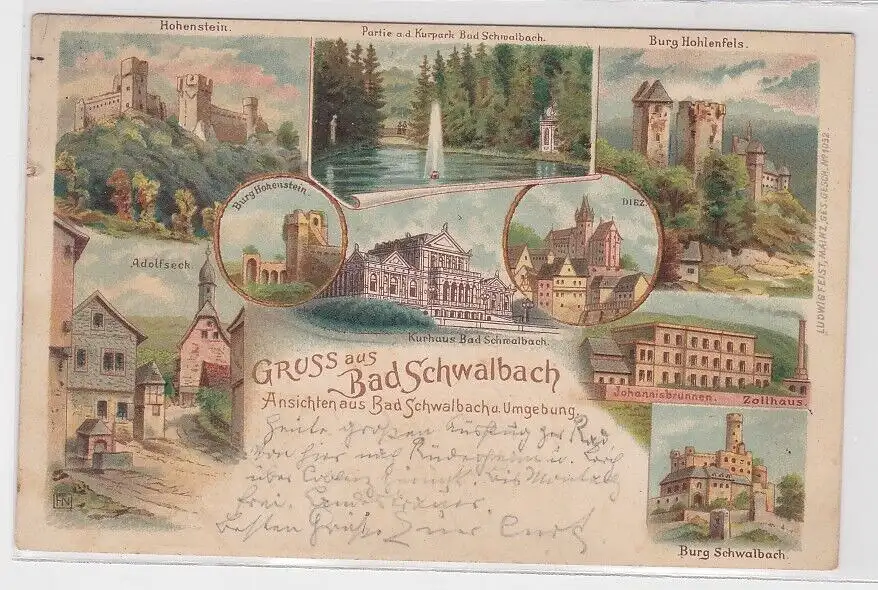 Hohenstein.
Partie a.d. Kurpark Bad Schwalbach.
Burg Hohlenfels.
Burg Hohenstein
DIEZ.
Adolfseck.
Kurhaus Bad Schwalbach.
LUDWIG FEIST, MAINZ, GES. GESCH. No 1032.
GRUSS aus
Bad Schwalbach
Ansichten aus Bad Schwalbach u. Umgebung
Johannisbrunnen.
Zollhaus
Heute großen Ausflug per Rad
von hier nach Rüdesheim u. Lorch
über Coblenz zurück. Bis Montag
frei.
Besten Gruß. Curt
FN
Burg Schwalbach.